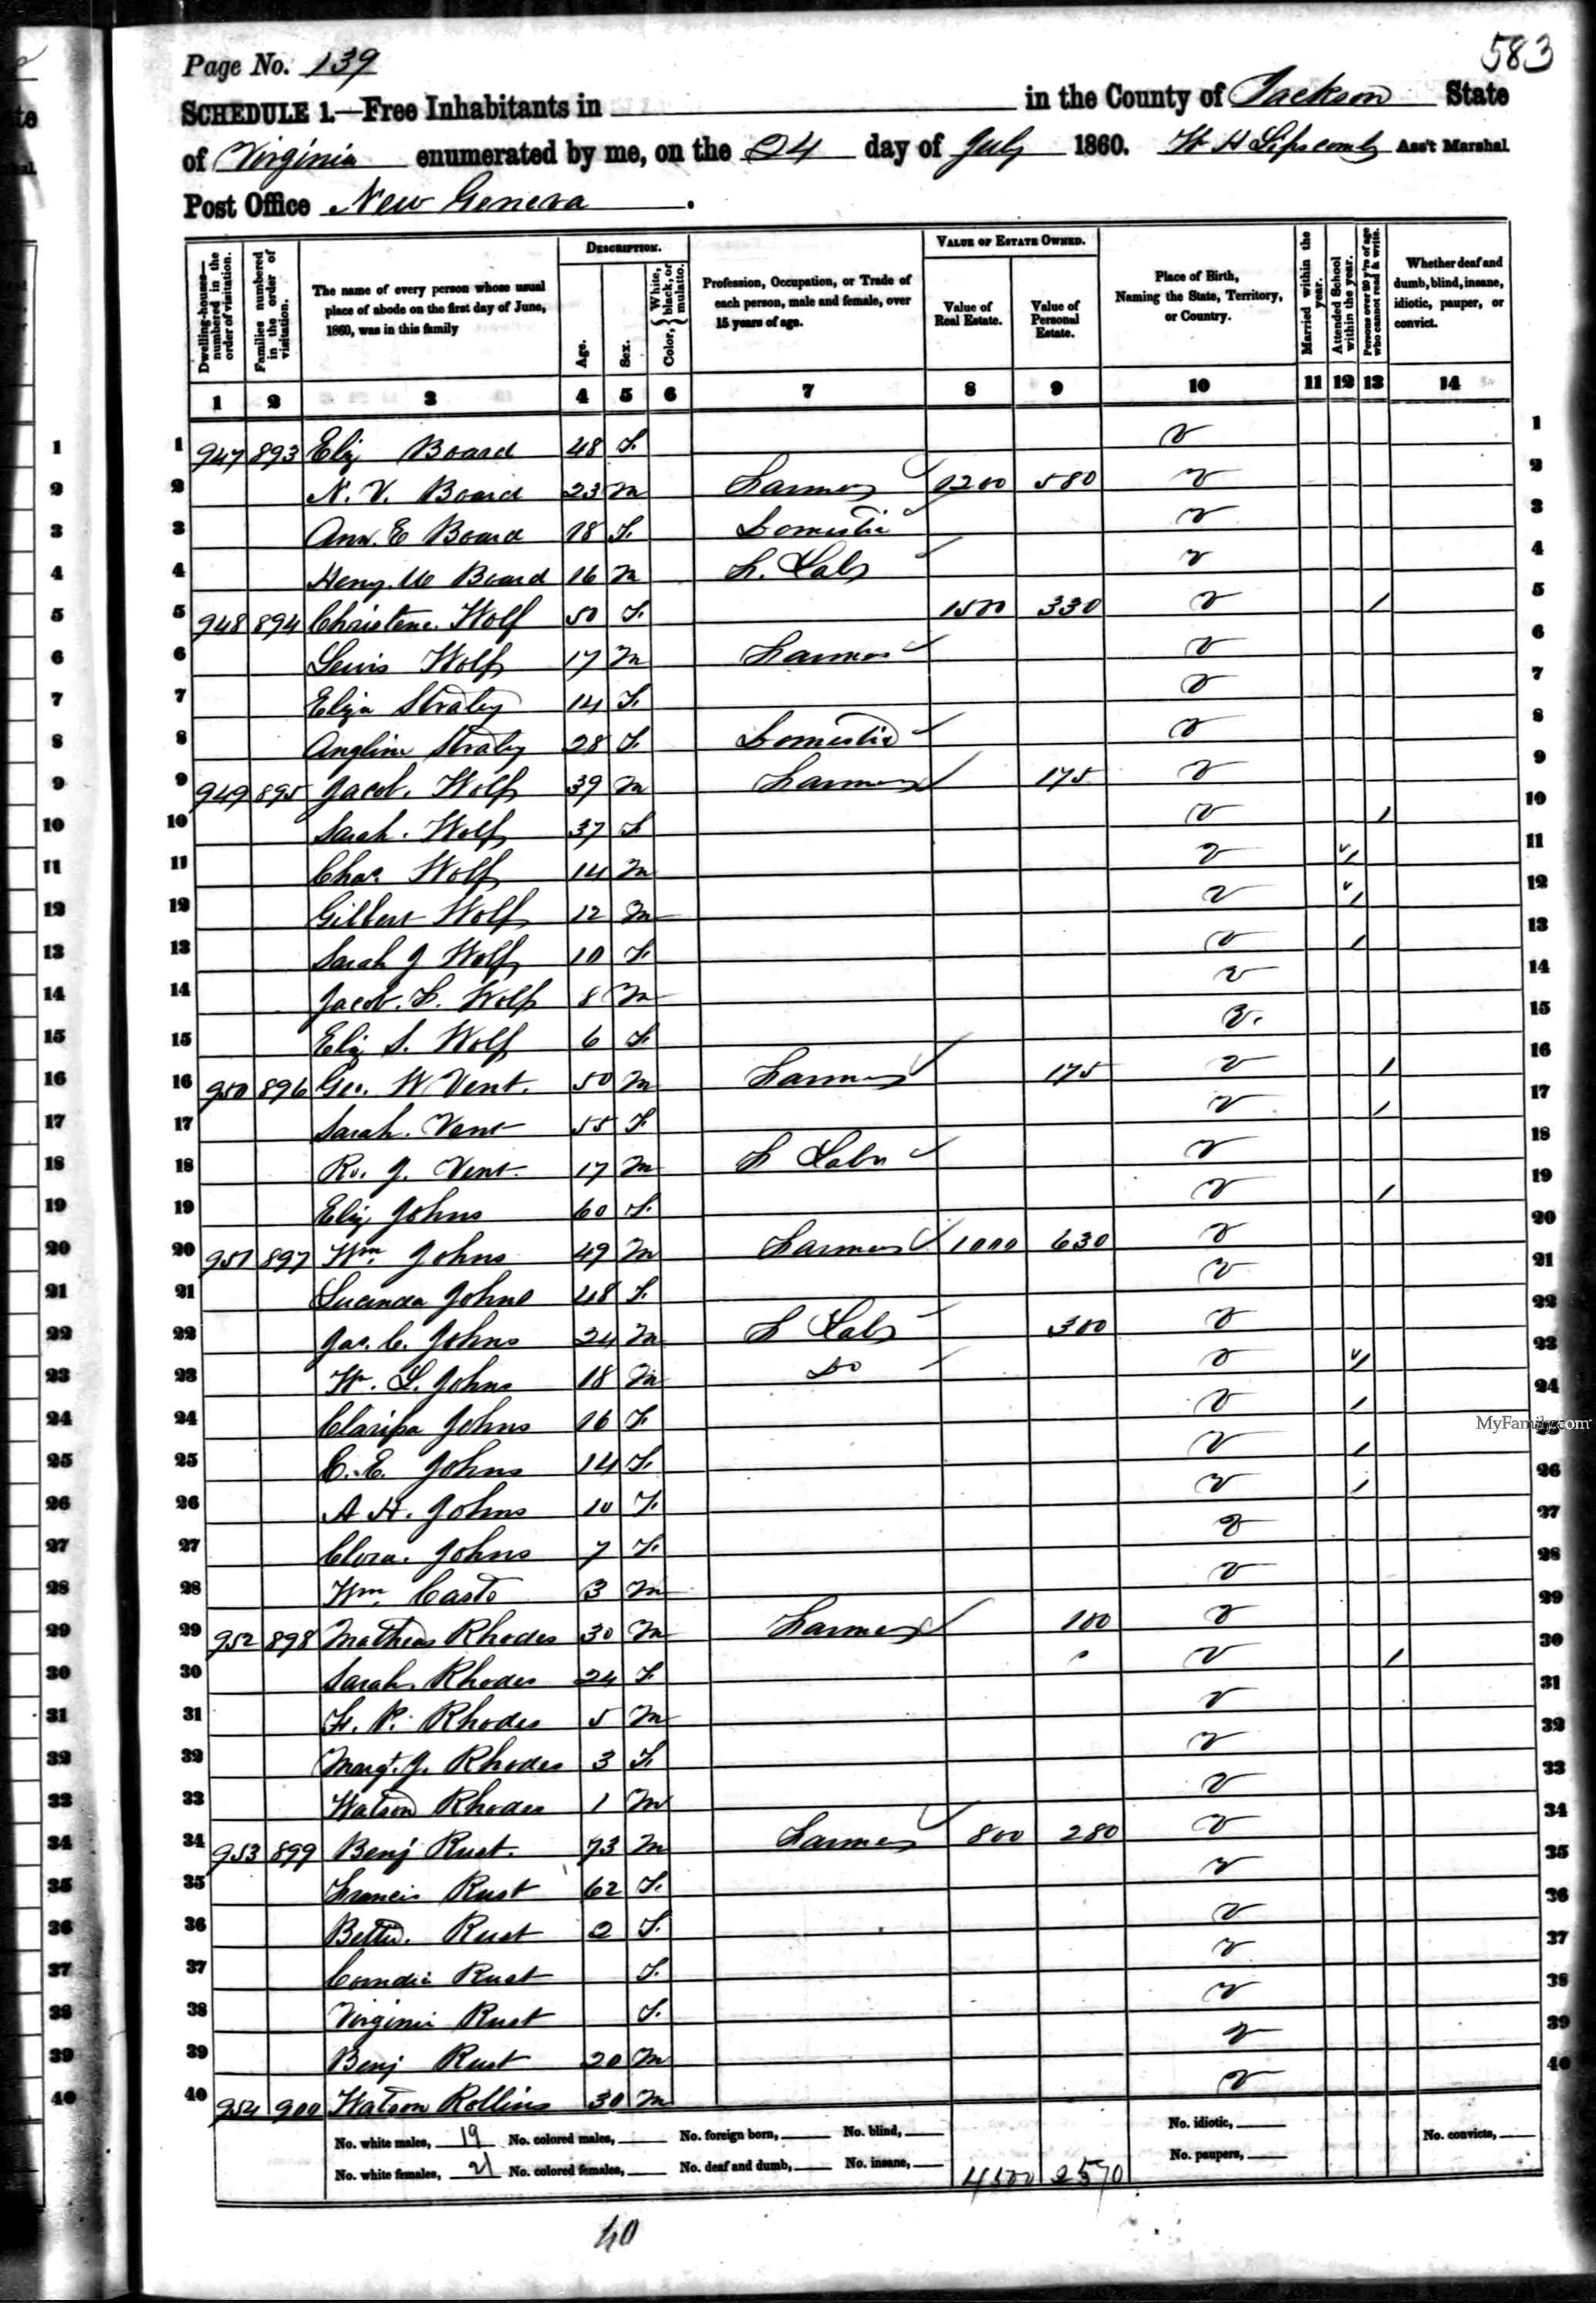 583
Page No. 139
SCHEDULE 1.—Free Inhabitants in in the County of Jackson State
of Virginia enumerated by me, on the 24 day of July 1860. W H Lipscomb Ass't Marshal
Post Office New Geneva .
Dwelling-houses—numbered in the order of visitation. Families numbered in the order of visitation. The name of every person whose usual place of abode on the first day of June, 1860, was in this family DESCRIPTION. Age. Sex. Color, { White, black, or mulatto. Profession, Occupation, or Trade of each person, male and female, over 15 years of age. VALUE OF ESTATE OWNED. Value of Real Estate. Value of Personal Estate. Place of Birth, Naming the State, Territory, or Country. Married within the year. Attended School within the year. Persons over 20 y'rs of age who cannot read & write. Whether deaf and dumb, blind, insane, idiotic, pauper, or convict.
1 2 3 4 5 6 7 8 9 10 11 12 13 14
1 947 893 Eliz Board 48 F. v 1
2 N. V. Board 23 m Farmer 1200 580 v 2
3 Ann. E Board 18 F. Domestic v 3
4 Henry. M Board 16 m F. Labr v 4
5 948 894 Christena Wolf 50 F. 1500 330 v / 5
6 Lewis Wolf 17 m Farmer v 6
7 Eliza Straley 14 F. v 7
8 Angline Straley 28 F. Domestic v 8
9 949 895 Jacob. Wolf 39 m Farmer 175 v 9
10 Sarah. Wolf 37 F v / 10
11 Chas. Wolf 14 m v / 11
12 Gilbert Wolf 12 m v / 12
13 Sarah J Wolf 10 F. v / 13
14 Jacob. F. Wolf 8 m v 14
15 Eliz S. Wolf 6 F. v. 15
16 950 896 Geo. W Vent. 50 m Farmer 175 v / 16
17 Sarah. Vent 55 F. v / 17
18 Ro. J. Vent. 17 m F Labr v 18
19 Eliz Johns 60 F. v / 19
20 951 897 Wm. Johns 49 m Farmer 1000 630 v 20
21 Lucinda Johns 48 F. v 21
22 Jas. C. Johns 24 m F Labr 300 v 22
23 W. L. Johns 18 m Do v / 23
24 Clarissa Johns 16 F. v / 24
25 C. E. Johns 14 F. v / 25
26 A H. Johns 10 F. v / 26
27 Clora. Johns 7 F. v 27
28 Wm. Casto 3 m v 28
29 952 898 Mathias Rhodes 30 m Farmer 100 v 29
30 Sarah Rhodes 24 F. v / 30
31 P. Rhodes 5 m v 31
32 Margt. J. Rhodes 3 F. v 32
33 Watson Rhodes 1 m v 33
34 953 899 Benj Rust. 73 m Farmer 800 280 v 34
35 Francis Rust 62 F. v 35
36 Rust 2 F. v 36
37 Rust F. v 37
38 Virginia Rust F. v 38
39 Benj Rust 20 m v 39
40 954 900 Watson Rollins 30 m v 40
No. white males, 19 No. colored males, No. foreign born, No. blind, No. idiotic, No. convicts,
No. white females, 21 No. colored females, No. deaf and dumb, No. insane, 4500 2570 No. paupers,
40
MyFamily.com